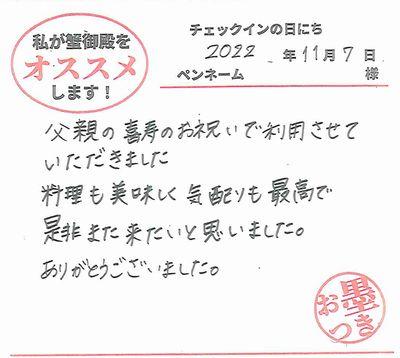 私が蟹御殿を
オススメ
します！
チェックインの日にち
2022 年 11 月 7 日
ペンネーム 様
父親の喜寿のお祝いで利用させて
いただきました
料理も美味しく気配りも最高で
是非また来たいと思いました。
ありがとうございました。
お墨つき